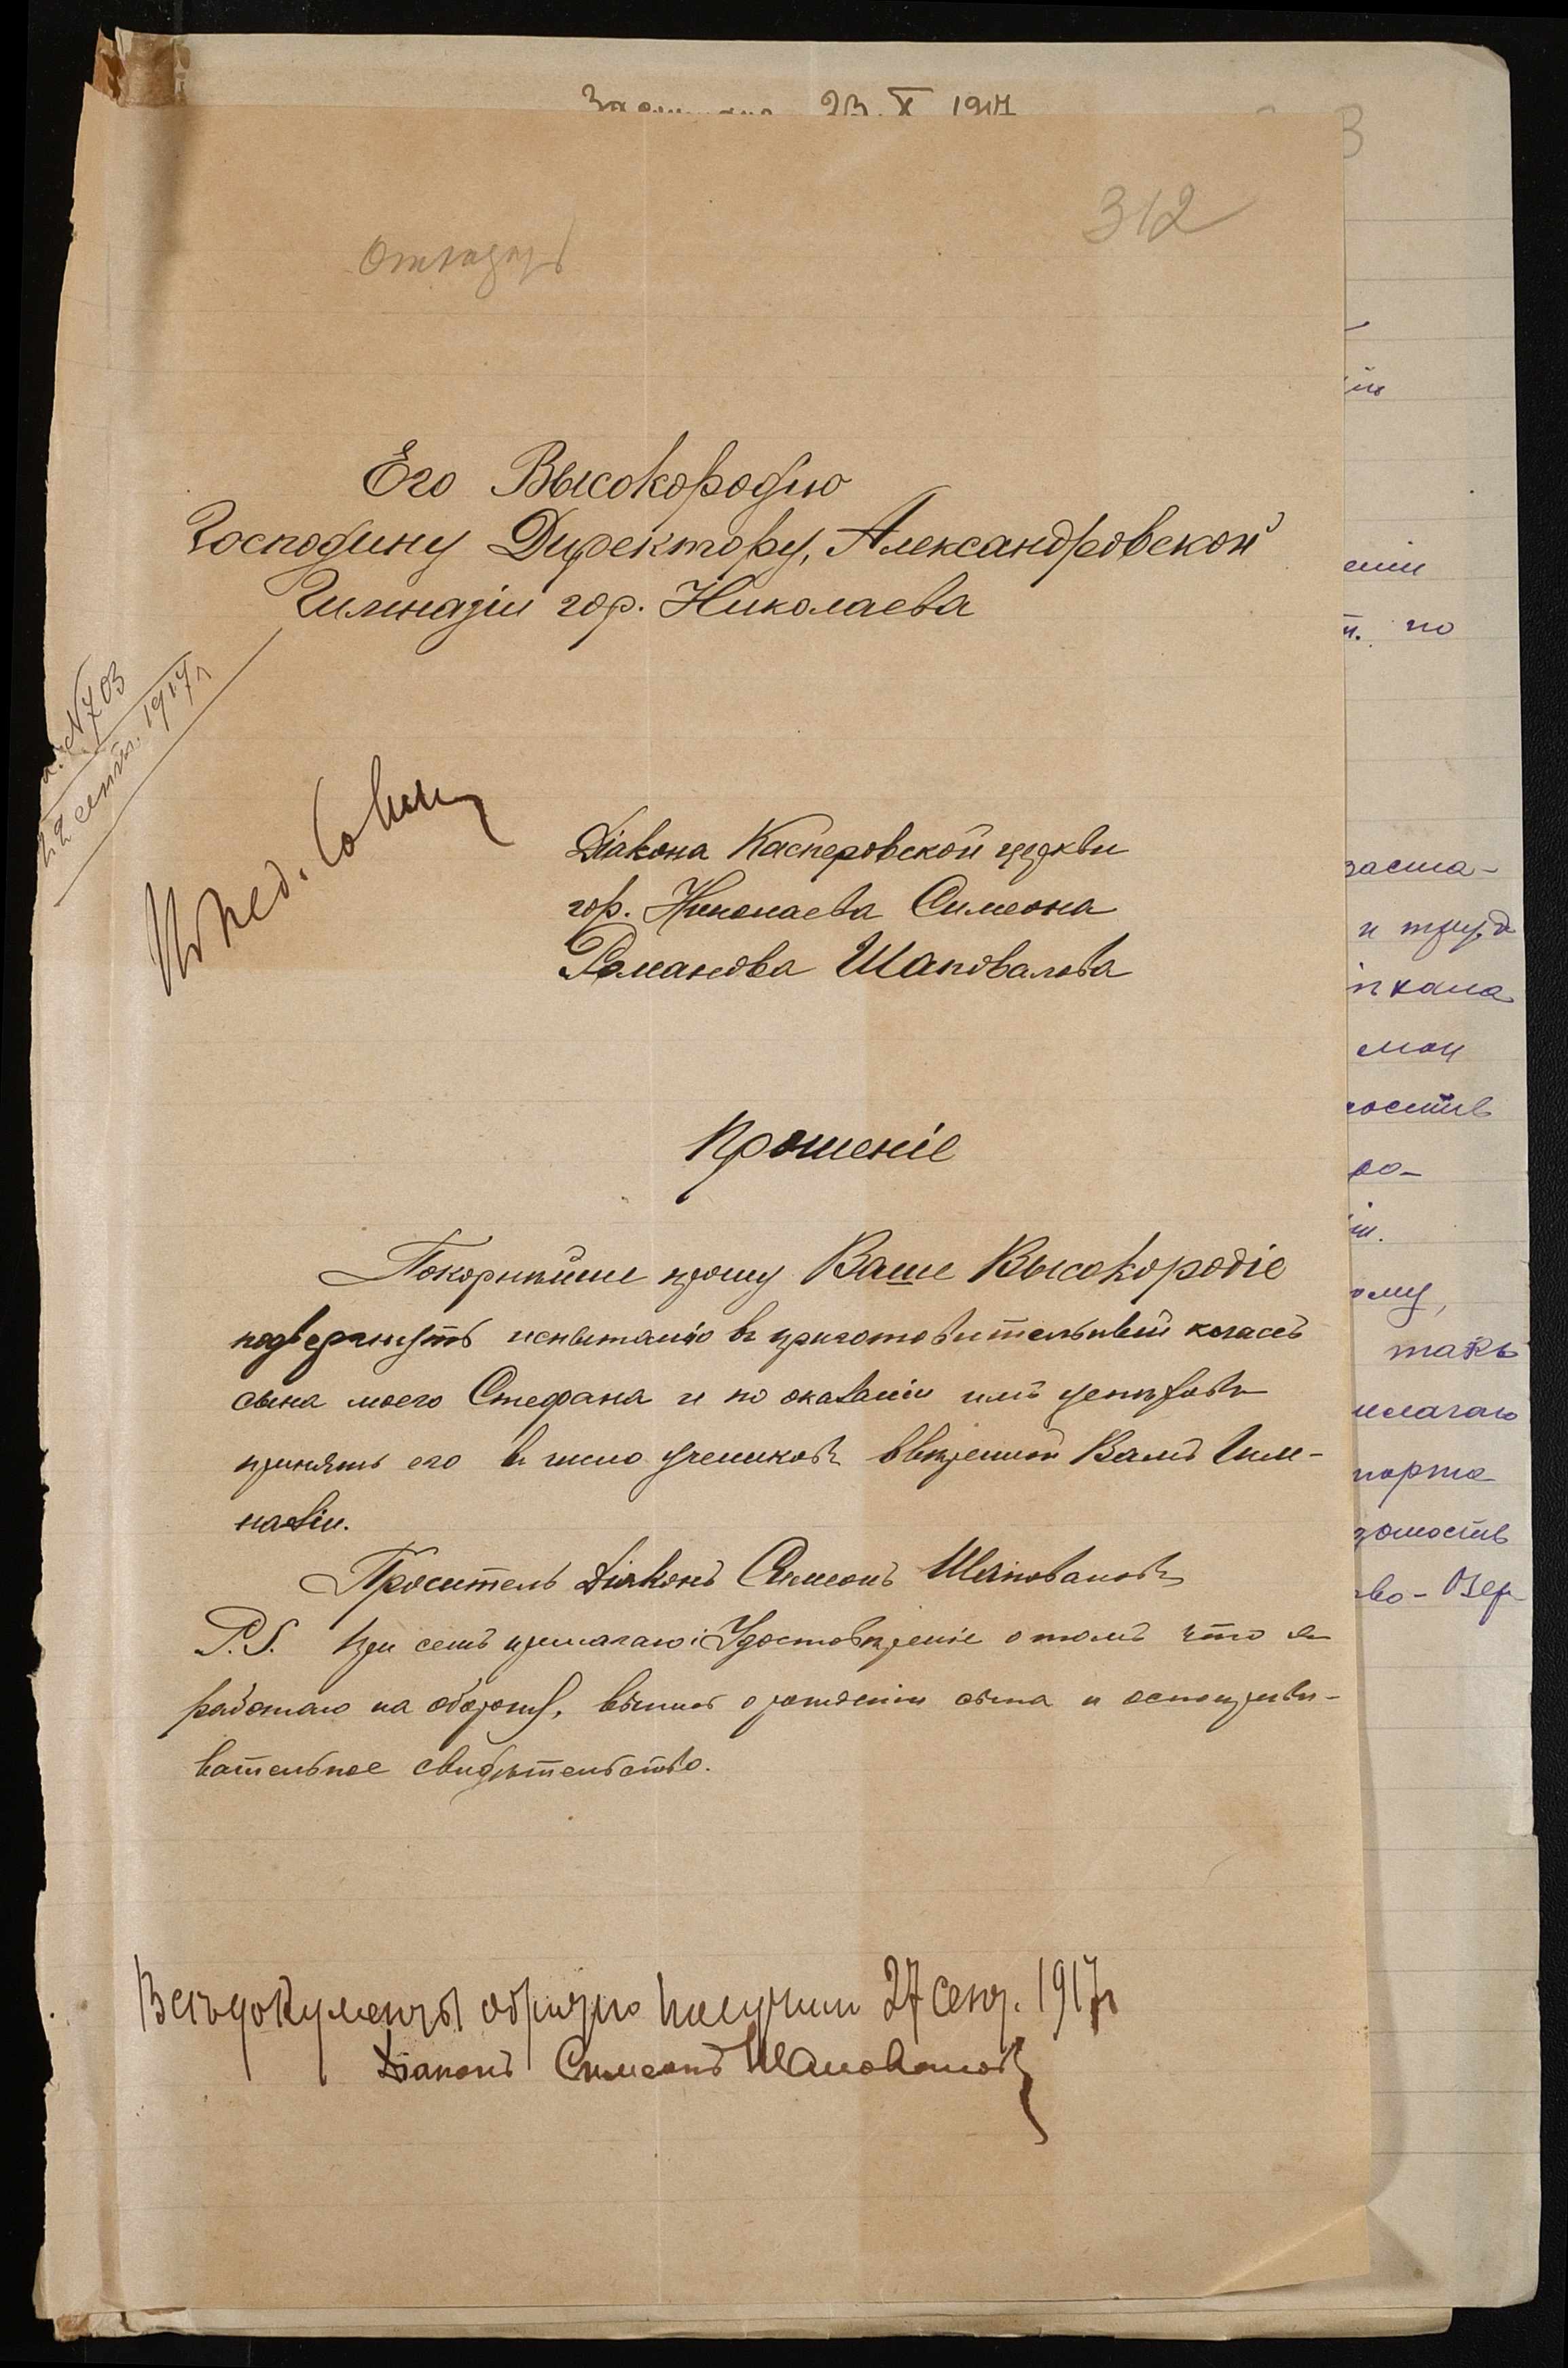 23. X 1917
312
Отказать
Его Высокородію
Господину Директору, Александровской
Гимназіи гор. Николаева
№ 703
22 сент. 1917 г.
Въ пед. Совет
Діакона Касперовской церкви
гор. Николаева Симеона
Романова Шаповалова
Прошеніе
Покорнѣйше прошу Ваше Высокородіе
подвергнуть испытанію въ приготовительный классъ
сына моего Стефана и по оказаніи имъ успѣховъ
принять его въ число учениковъ ввѣренной Вамъ Гим-
назіи.
Проситель Діаконъ Симеонъ Шаповаловъ
P.S. При семъ прилагаю: Удостовѣреніе о томъ что я
работаю на оборону, выпись о рожденіи сына и оспоприви-
вательное свидѣтельство.
Всѣ документы обратно получилъ 27 сент. 1917 г
Діаконъ Симеонъ Шаповаловъ
еніи
по
заста-
и труд
мои
ро-
ому,
такъ
илагаю
порта